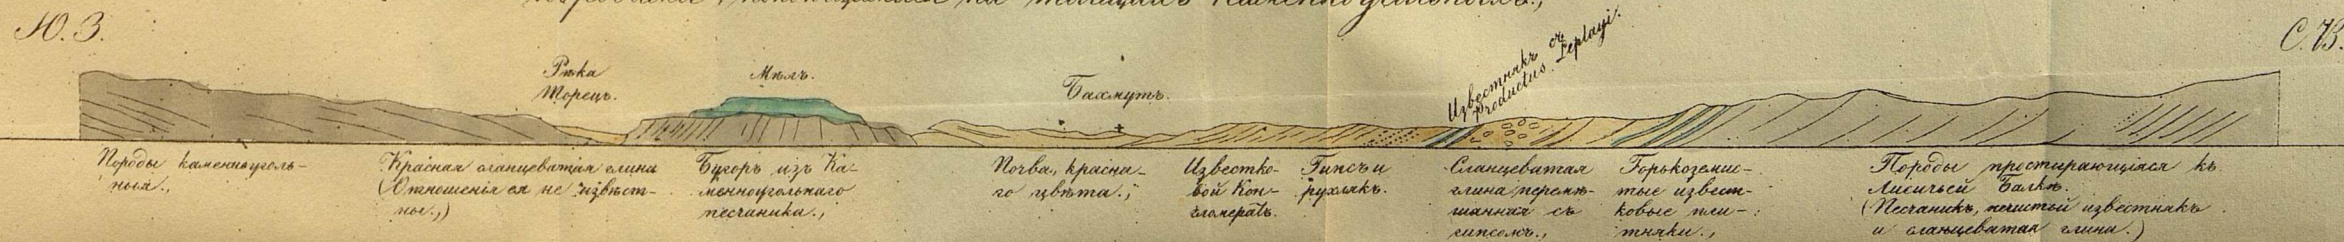 Ю. З.
С. В.
Рѣка
Торецъ.
Мѣлъ.
Бахмутъ.
Известнякъ съ
Productus Leplayi.
Породы каменноуголь-
ныя.,
Красная сланцеватая глина
(Отношенія ея не извѣст-
ны.,)
Бугоръ изъ Ка-
менноугольнаго
песчаника.,
Почва, красна-
го цвѣта.,
Известко-
вой Кон-
гломератъ.
Гипсъ и
рухлякъ.
Сланцеватая
глина перемѣ-
шанная съ
гипсомъ.,
Горькоземис-
тые извест-
ковые
Породы простирающіяся къ
Лисичьей Балкѣ.
(Песчаникъ, нечистый известнякъ
и сланцеватая глина.)